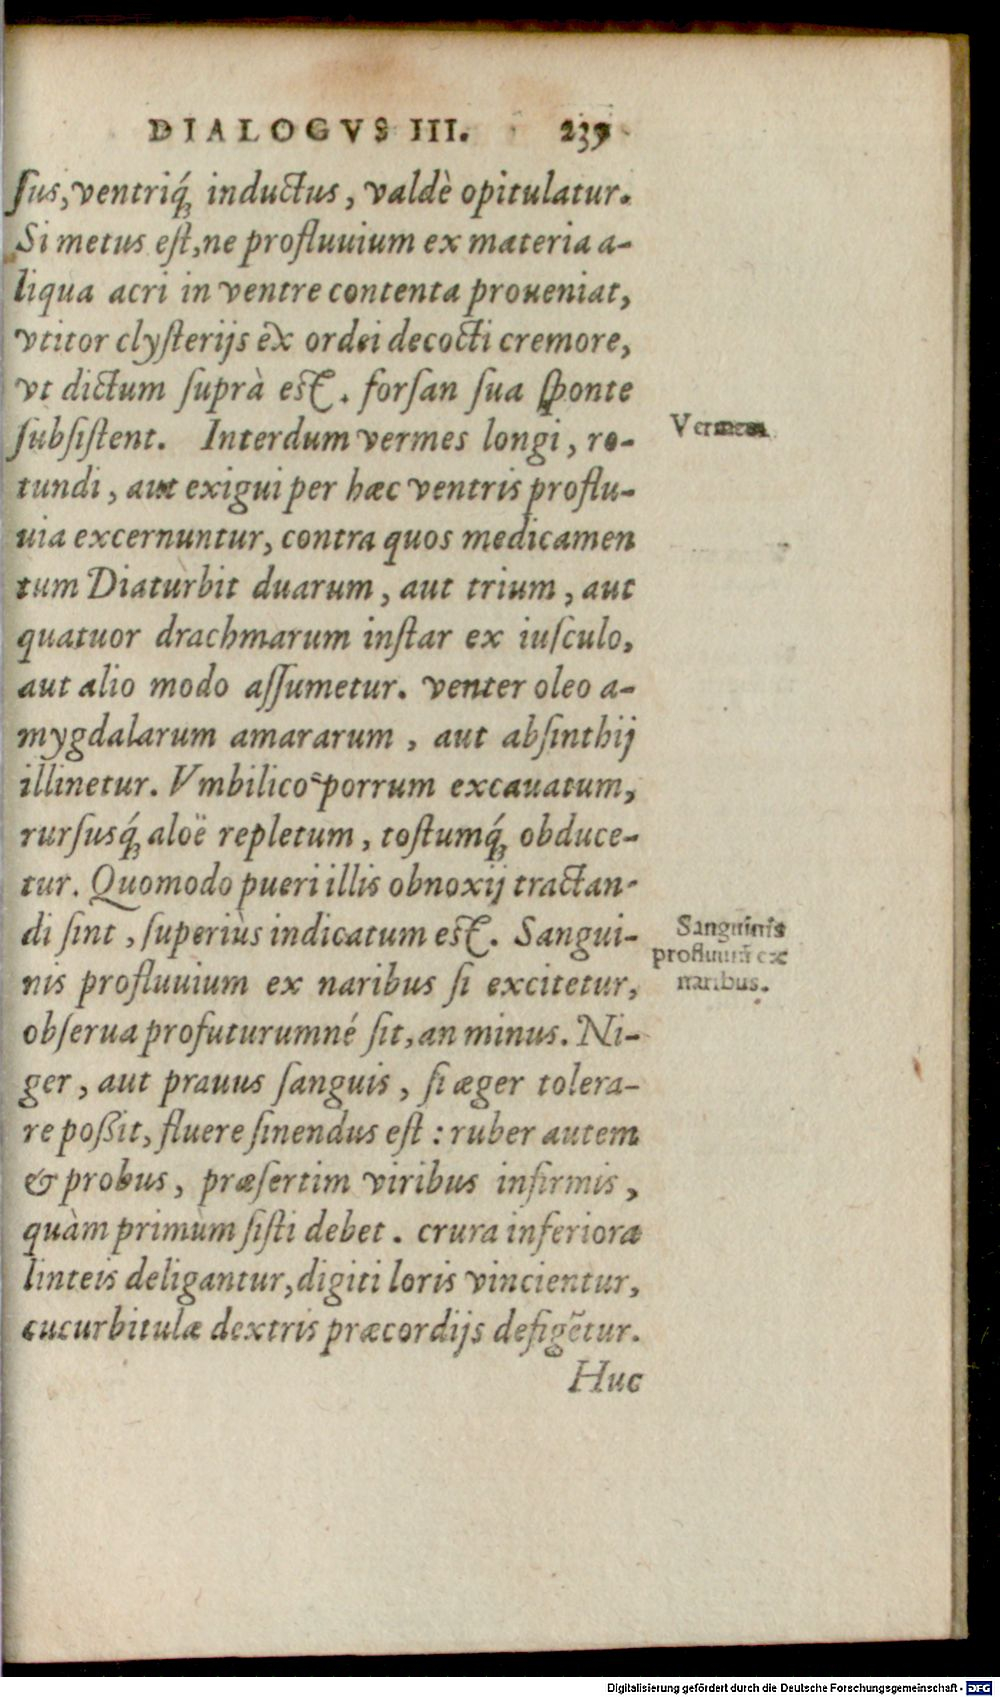 DIALOGVS III. 239
sus, ventriq́ʒ inductus, valdè opitulatur.
Si metus est, ne profluuium ex materia a-
liqua acri in ventre contenta proueniat,
vtitor clysterijs ex ordei decocti cremore,
vt dictum suprà est. forsan sua sponte
subsistent. Interdum vermes longi, ro-
tundi, aut exigui per hæc ventris proflu-
uia excernuntur, contra quos medicamen
tum Diaturbit duarum, aut trium, aut
quatuor drachmarum instar ex iusculo,
aut alio modo assumetur. venter oleo a-
mygdalarum amararum, aut absinthij
illinetur. Vmbilico porrum excauatum,
rursusq́ʒ aloë repletum, tostumq́ʒ obduce-
tur. Quomodo pueri illis obnoxij tractan-
di sint, superiùs indicatum est. Sangui-
nis profluuium ex naribus si excitetur,
obserua profuturumné sit, an minus. Ni-
ger, aut prauus sanguis, si æger tolera-
re poßit, fluere sinendus est: ruber autem
& probus, præsertim viribus infirmis,
quàm primùm sisti debet. crura inferiora
linteis deligantur, digiti loris vincientur,
cucurbitulæ dextris præcordijs defigẽtur.
Huc
Vermes
Sanguinis
profluuiũ ex
naribus.
Digitalisierung gefördert durch die Deutsche Forschungsgemeinschaft - DFG